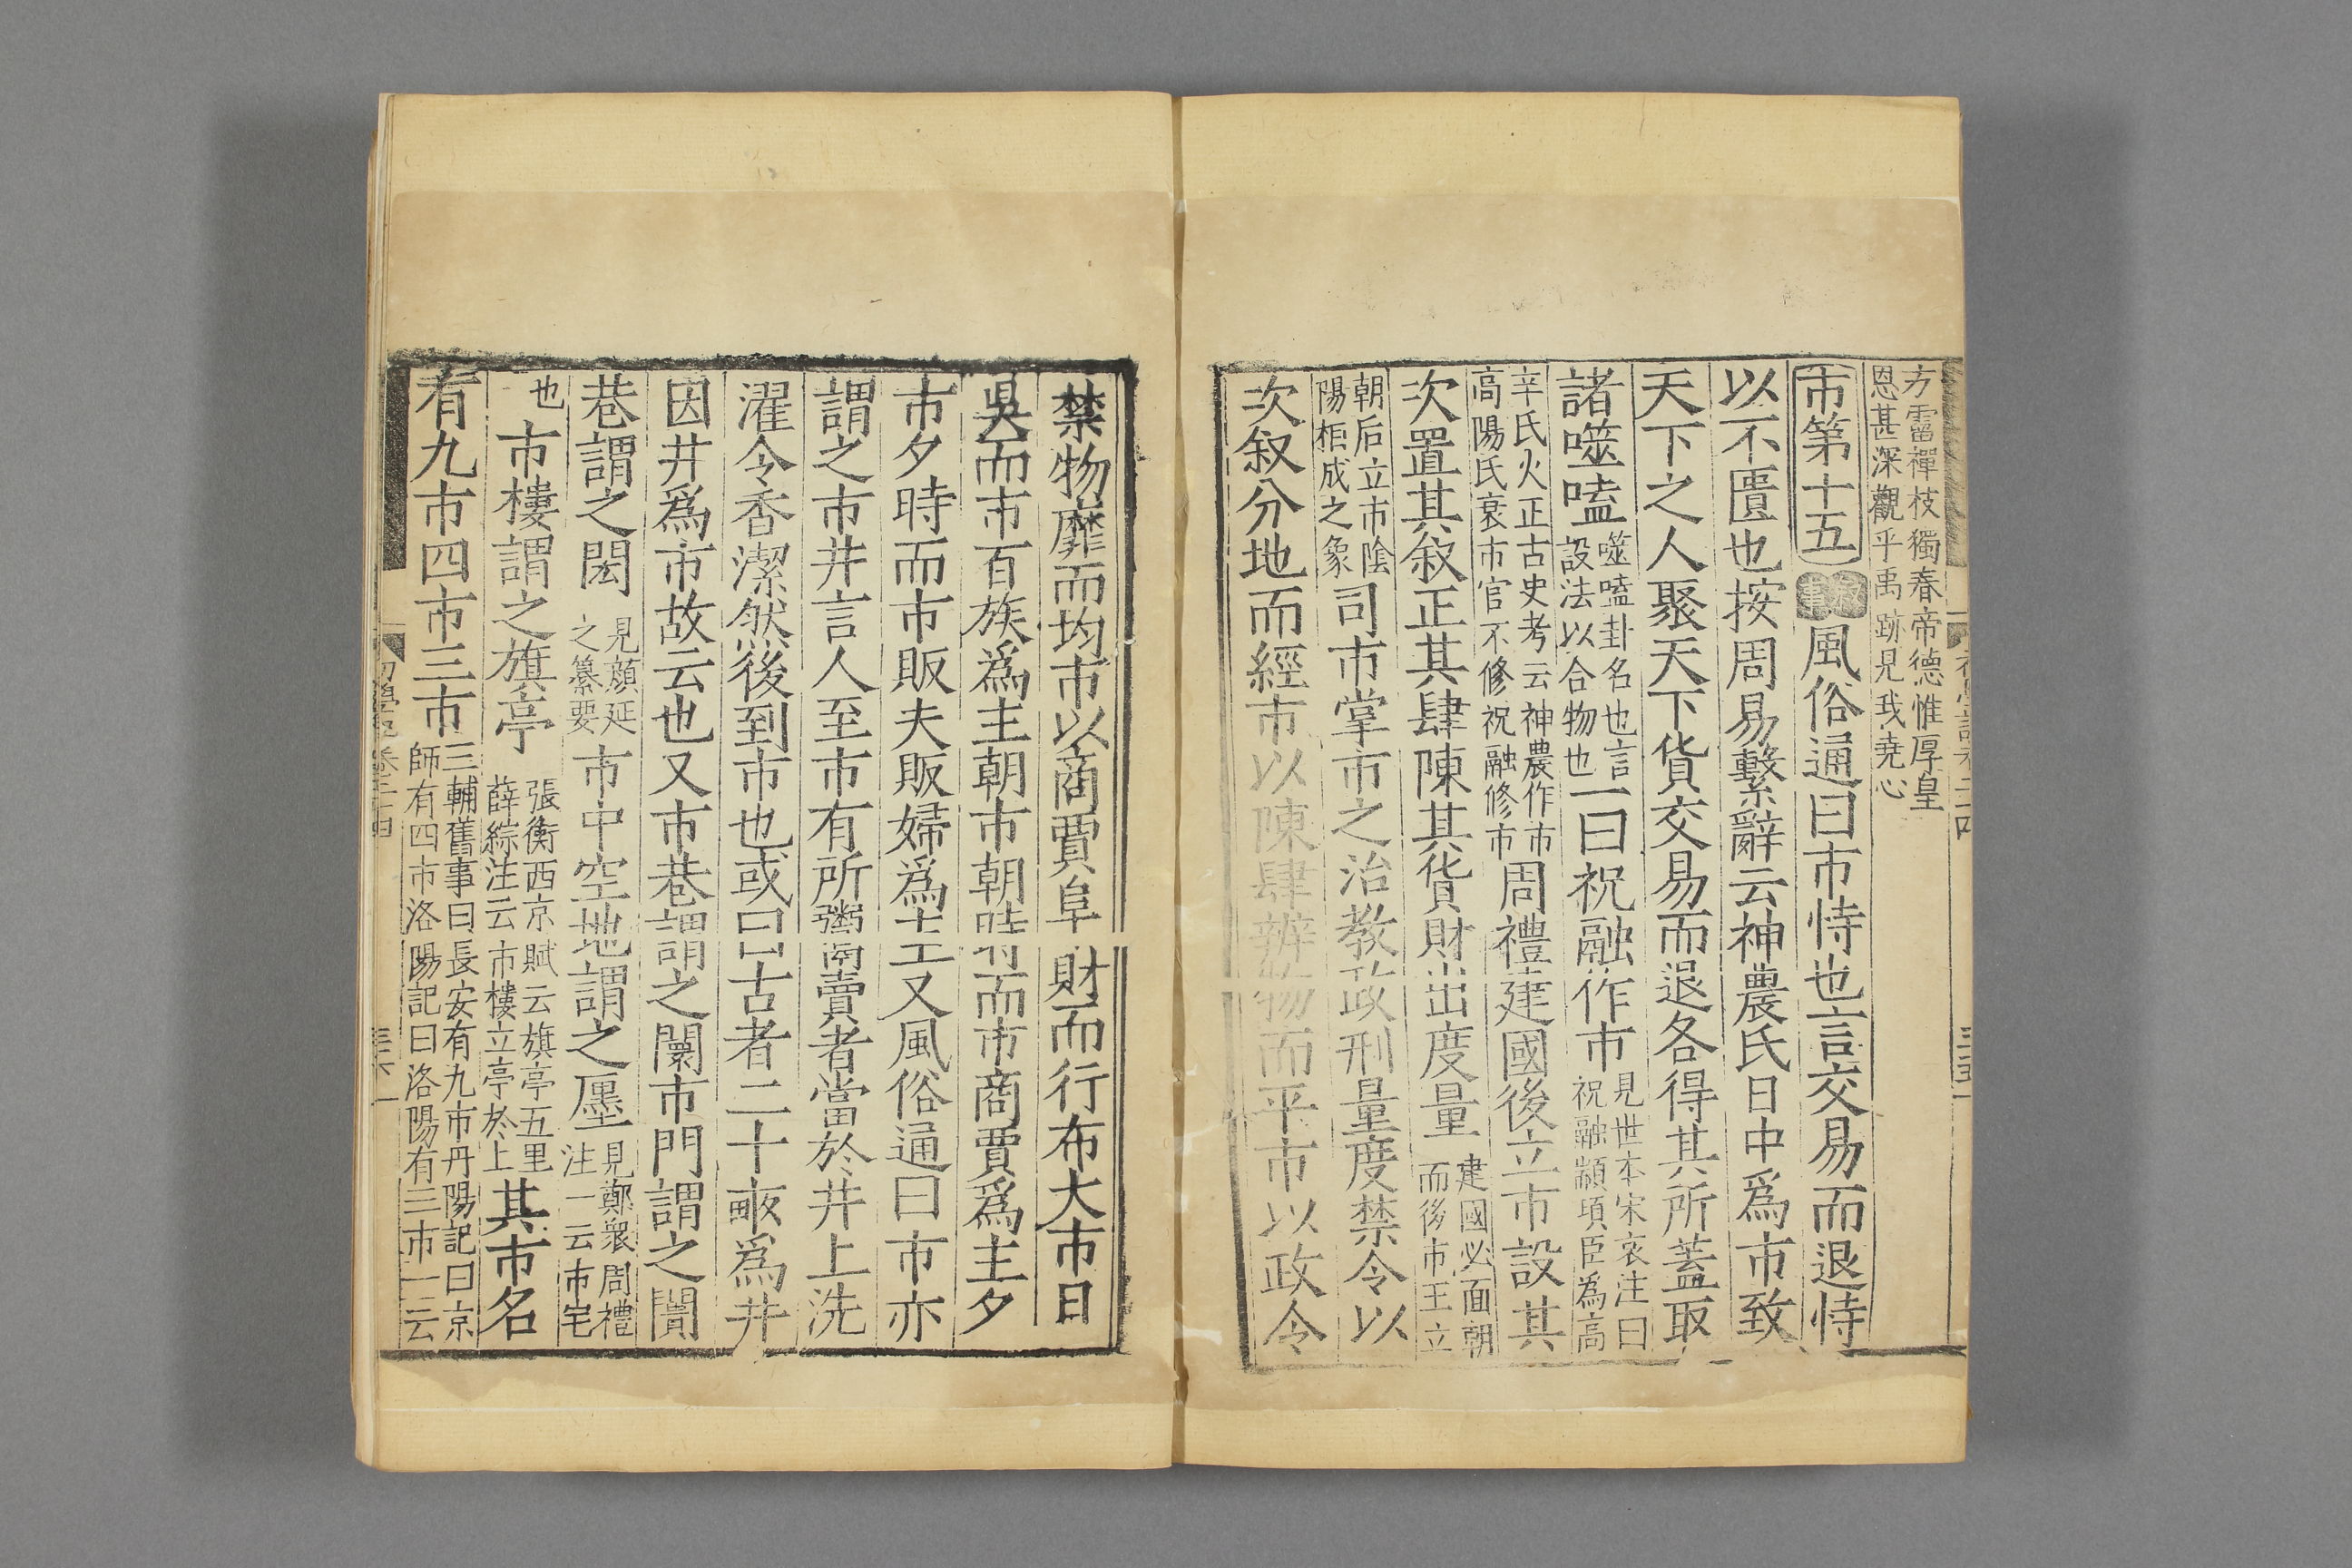 方雷禪枝獨春帝德惟厚皇
恩甚深觀乎禹跡見我堯心
市第十五 敘事 風俗通曰市恃也言交易而退恃
以不匱也按周易繫辭云神農氏日中爲市致
天下之人聚天下貨交易而退各得其所蓋取
諸噬嗑 噬嗑卦名也言設法以合物也 一曰祝融作市 見世本宋衷注曰祝融顓頊臣爲高
辛氏火正古史考云神農作市高陽氏衰市官不修祝融修市 周禮建國後立市設其
次置其叙正其肆陳其貨財出度量 建國必面朝而後市王立
朝后立市陰陽相成之象 司市掌市之治教政刑量度禁令以
次叙分地而經市以陳肆辨物而平市以政令
禁物靡而均市以商賈阜財而行布大市日
昃而市百族爲主朝市朝時而市商賈爲主夕
市夕時而市販夫販婦爲主又風俗通曰市亦
謂之市井言人至市有所鬻賣者當於井上洗
濯令香潔然後到市也或曰古者二十畝爲井
因井爲市故云也又市巷謂之闤市門謂之闠
巷謂之閎 見顔延之纂要 市中空地謂之廛 見鄭衆周禮注一云市宅
也 市樓謂之旗亭 張衡西京賦云旗亭五里薛綜注云市樓立亭於上 其市名
有九市四市三市 三輔舊事曰長安有九市丹陽記曰京師有四市洛陽記曰洛陽有三市一云
初學記卷二十四